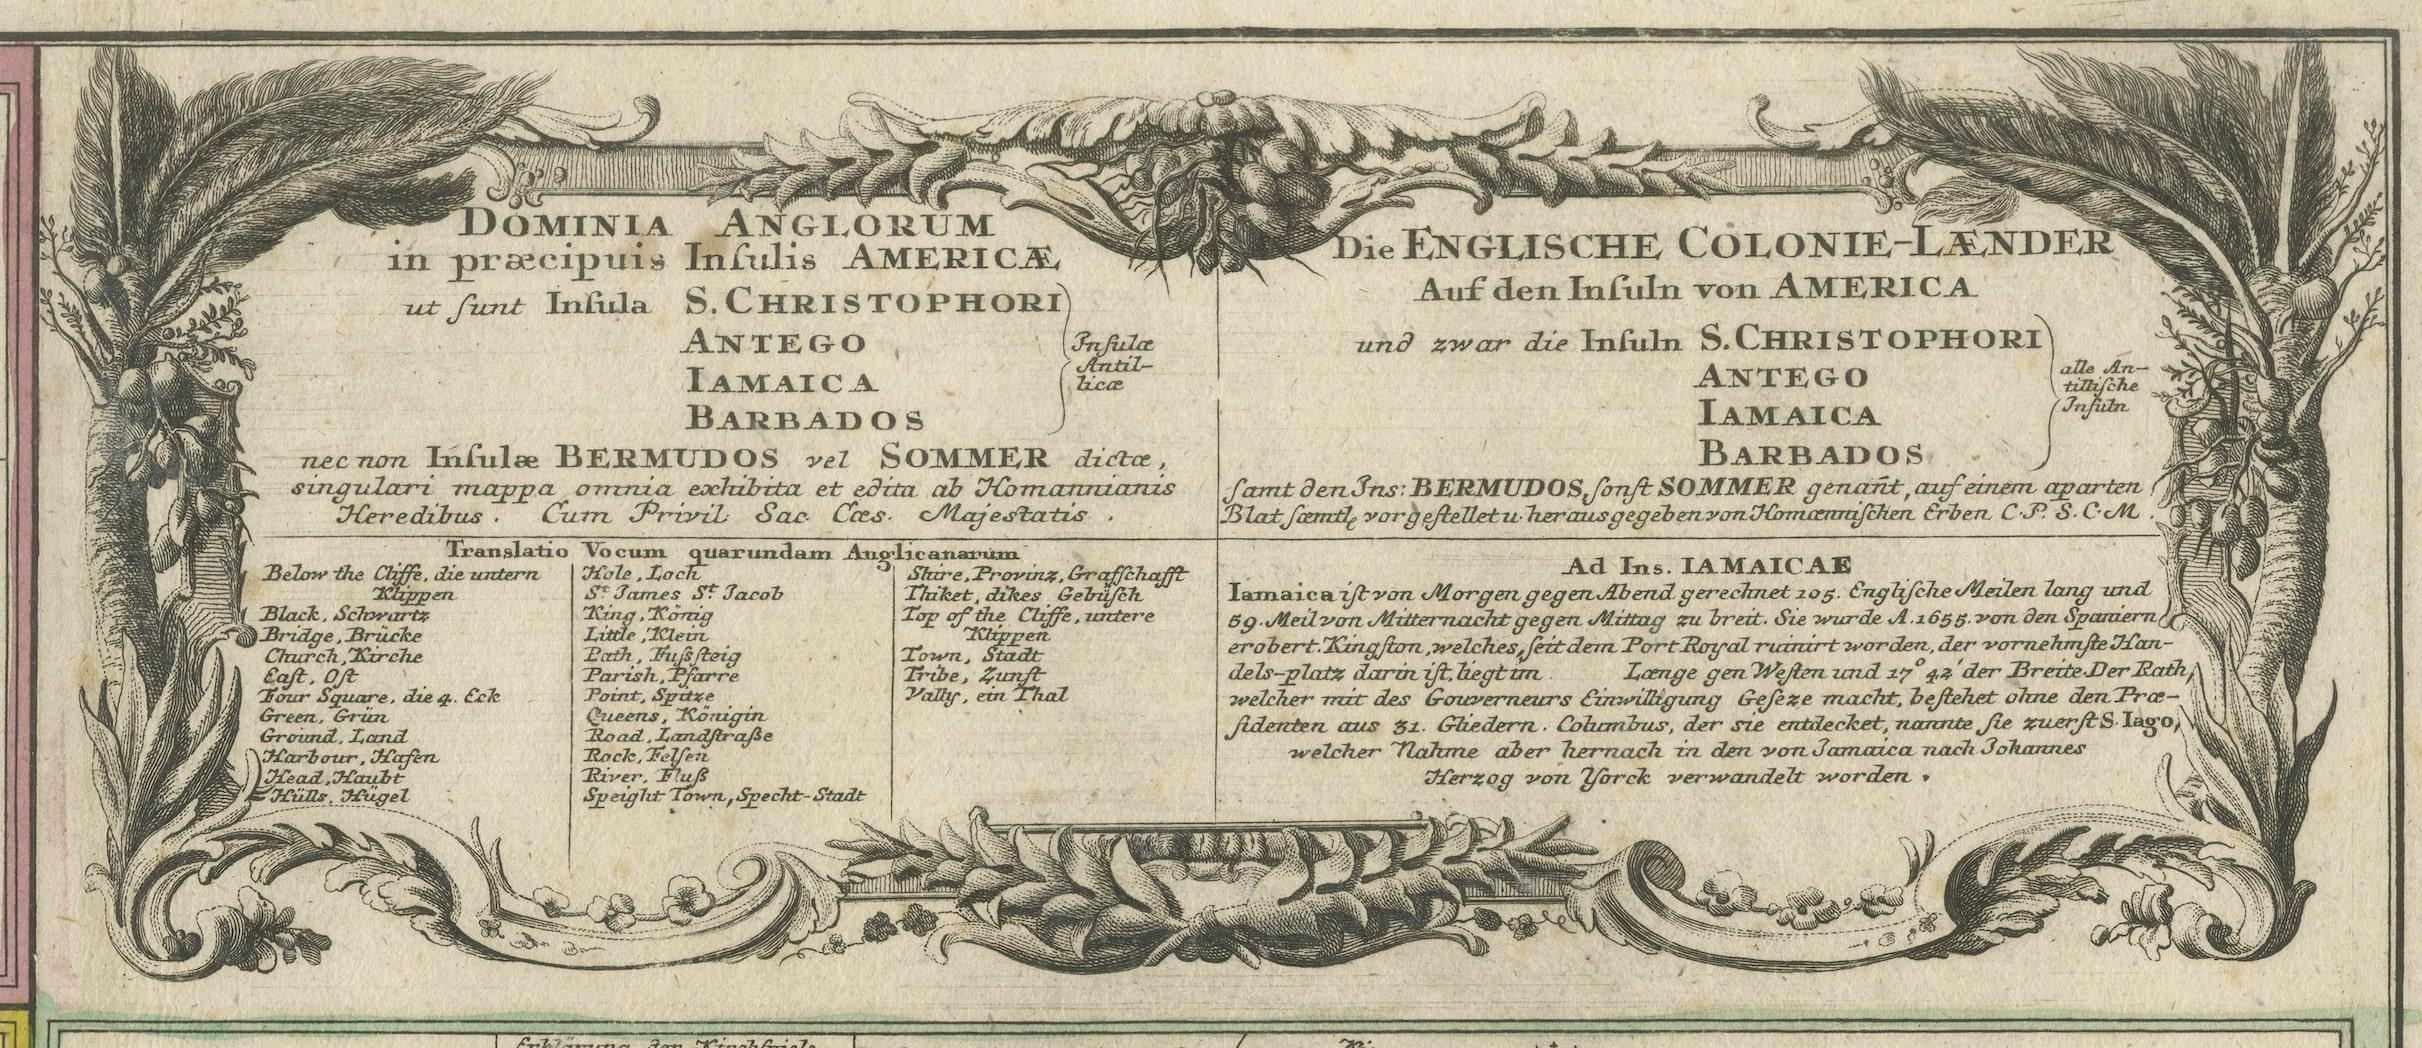 DOMINIA ANGLORUM
in præcipuis Inſulis AMERICÆ
ut ſunt Inſula S. CHRISTOPHORI
ANTEGO
IAMAICA
BARBADOS
Inſulæ
Antil-
licæ
nec non Inſulæ BERMUDOS vel SOMMER dictæ,
singulari mappa omnia exhibita et edita ab Homannianis
Heredibus. Cum Privil. Sac. Cæs. Majestatis.
Die ENGLISCHE COLONIE-LÆNDER
Auf den Inſuln von AMERICA
und zwar die Inſuln S. CHRISTOPHORI
ANTEGO
IAMAICA
BARBADOS
alle An-
tilliſche
Inſuln
ſamt den Ins: BERMUDOS, ſonſt SOMMER genañt, auf einem aparten
Blat ſæmtl. vorgeſtellet u. herausgegeben von Homænniſchen Erben C.P.S.C.M.
Translatio Vocum quarundam Anglicanarum
Below the Cliffe, die untern
Klippen
Black, Schwartz
Bridge, Brücke
Church, Kirche
Eaſt, Oſt
Four Square, die 4. Eck
Green, Grün
Ground, Land
Harbour, Hafen
Head, Haubt
Hülls, Hügel
Hole, Loch
St. James St. Jacob
King, König
Little, Klein
Path, Fuſsſteig
Parish, Pfarre
Point, Spitze
Queens, Königin
Road, Landſtraße
Rock, Felſen
River, Fluß
Speight Town, Specht-Stadt
Shire, Provinz, Graffſchafft
Thiket, dikes Gebüſch
Top of the Cliffe, untere
Klippen
Town, Stadt
Tribe, Zunft
Vally, ein Thal
Ad Ins. IAMAICAE
Iamaica iſt von Morgen gegen Abend gerechnet 105. Engliſche Meilen lang und
59. Meil von Mitternacht gegen Mittag zu breit. Sie wurde A. 1655. von den Spaniern
erobert. Kingſton, welches, ſeit dem Port Royal ruinirt worden, der vornehmſte Han-
dels-platz darin iſt, liegt im Længe gen Weſten und 17° 42' der Breite. Der Rath,
welcher mit des Gouverneurs Einwilligung Geſeze macht, beſtehet ohne den Præ-
ſidenten aus 31. Gliedern. Columbus, der sie entdecket, nannte ſie zuerſt S. Iago,
welcher Nahme aber hernach in den von Jamaica nach Johannes
Herzog von Yorck verwandelt worden.
Erklärung der Kirchſpiele